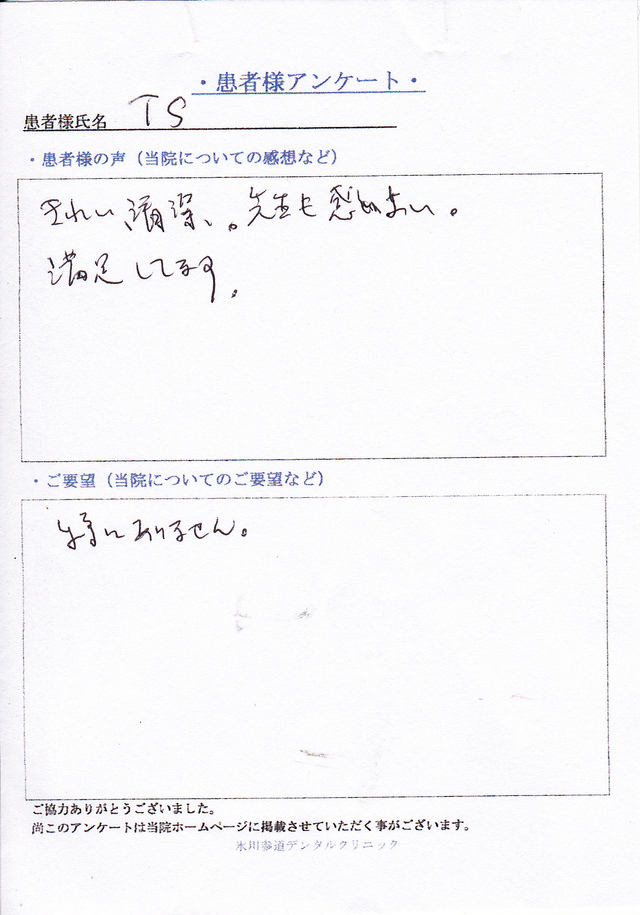 ・患者様アンケート・
患者様氏名 TS
・患者様の声（当院についての感想など）
きれい、清潔、。先生も感じよい。
満足してます。
・ご要望（当院についてのご要望など）
特にありません。
ご協力ありがとうございました。
尚このアンケートは当院ホームページに掲載させていただく事がございます。
氷川参道デンタルクリニック